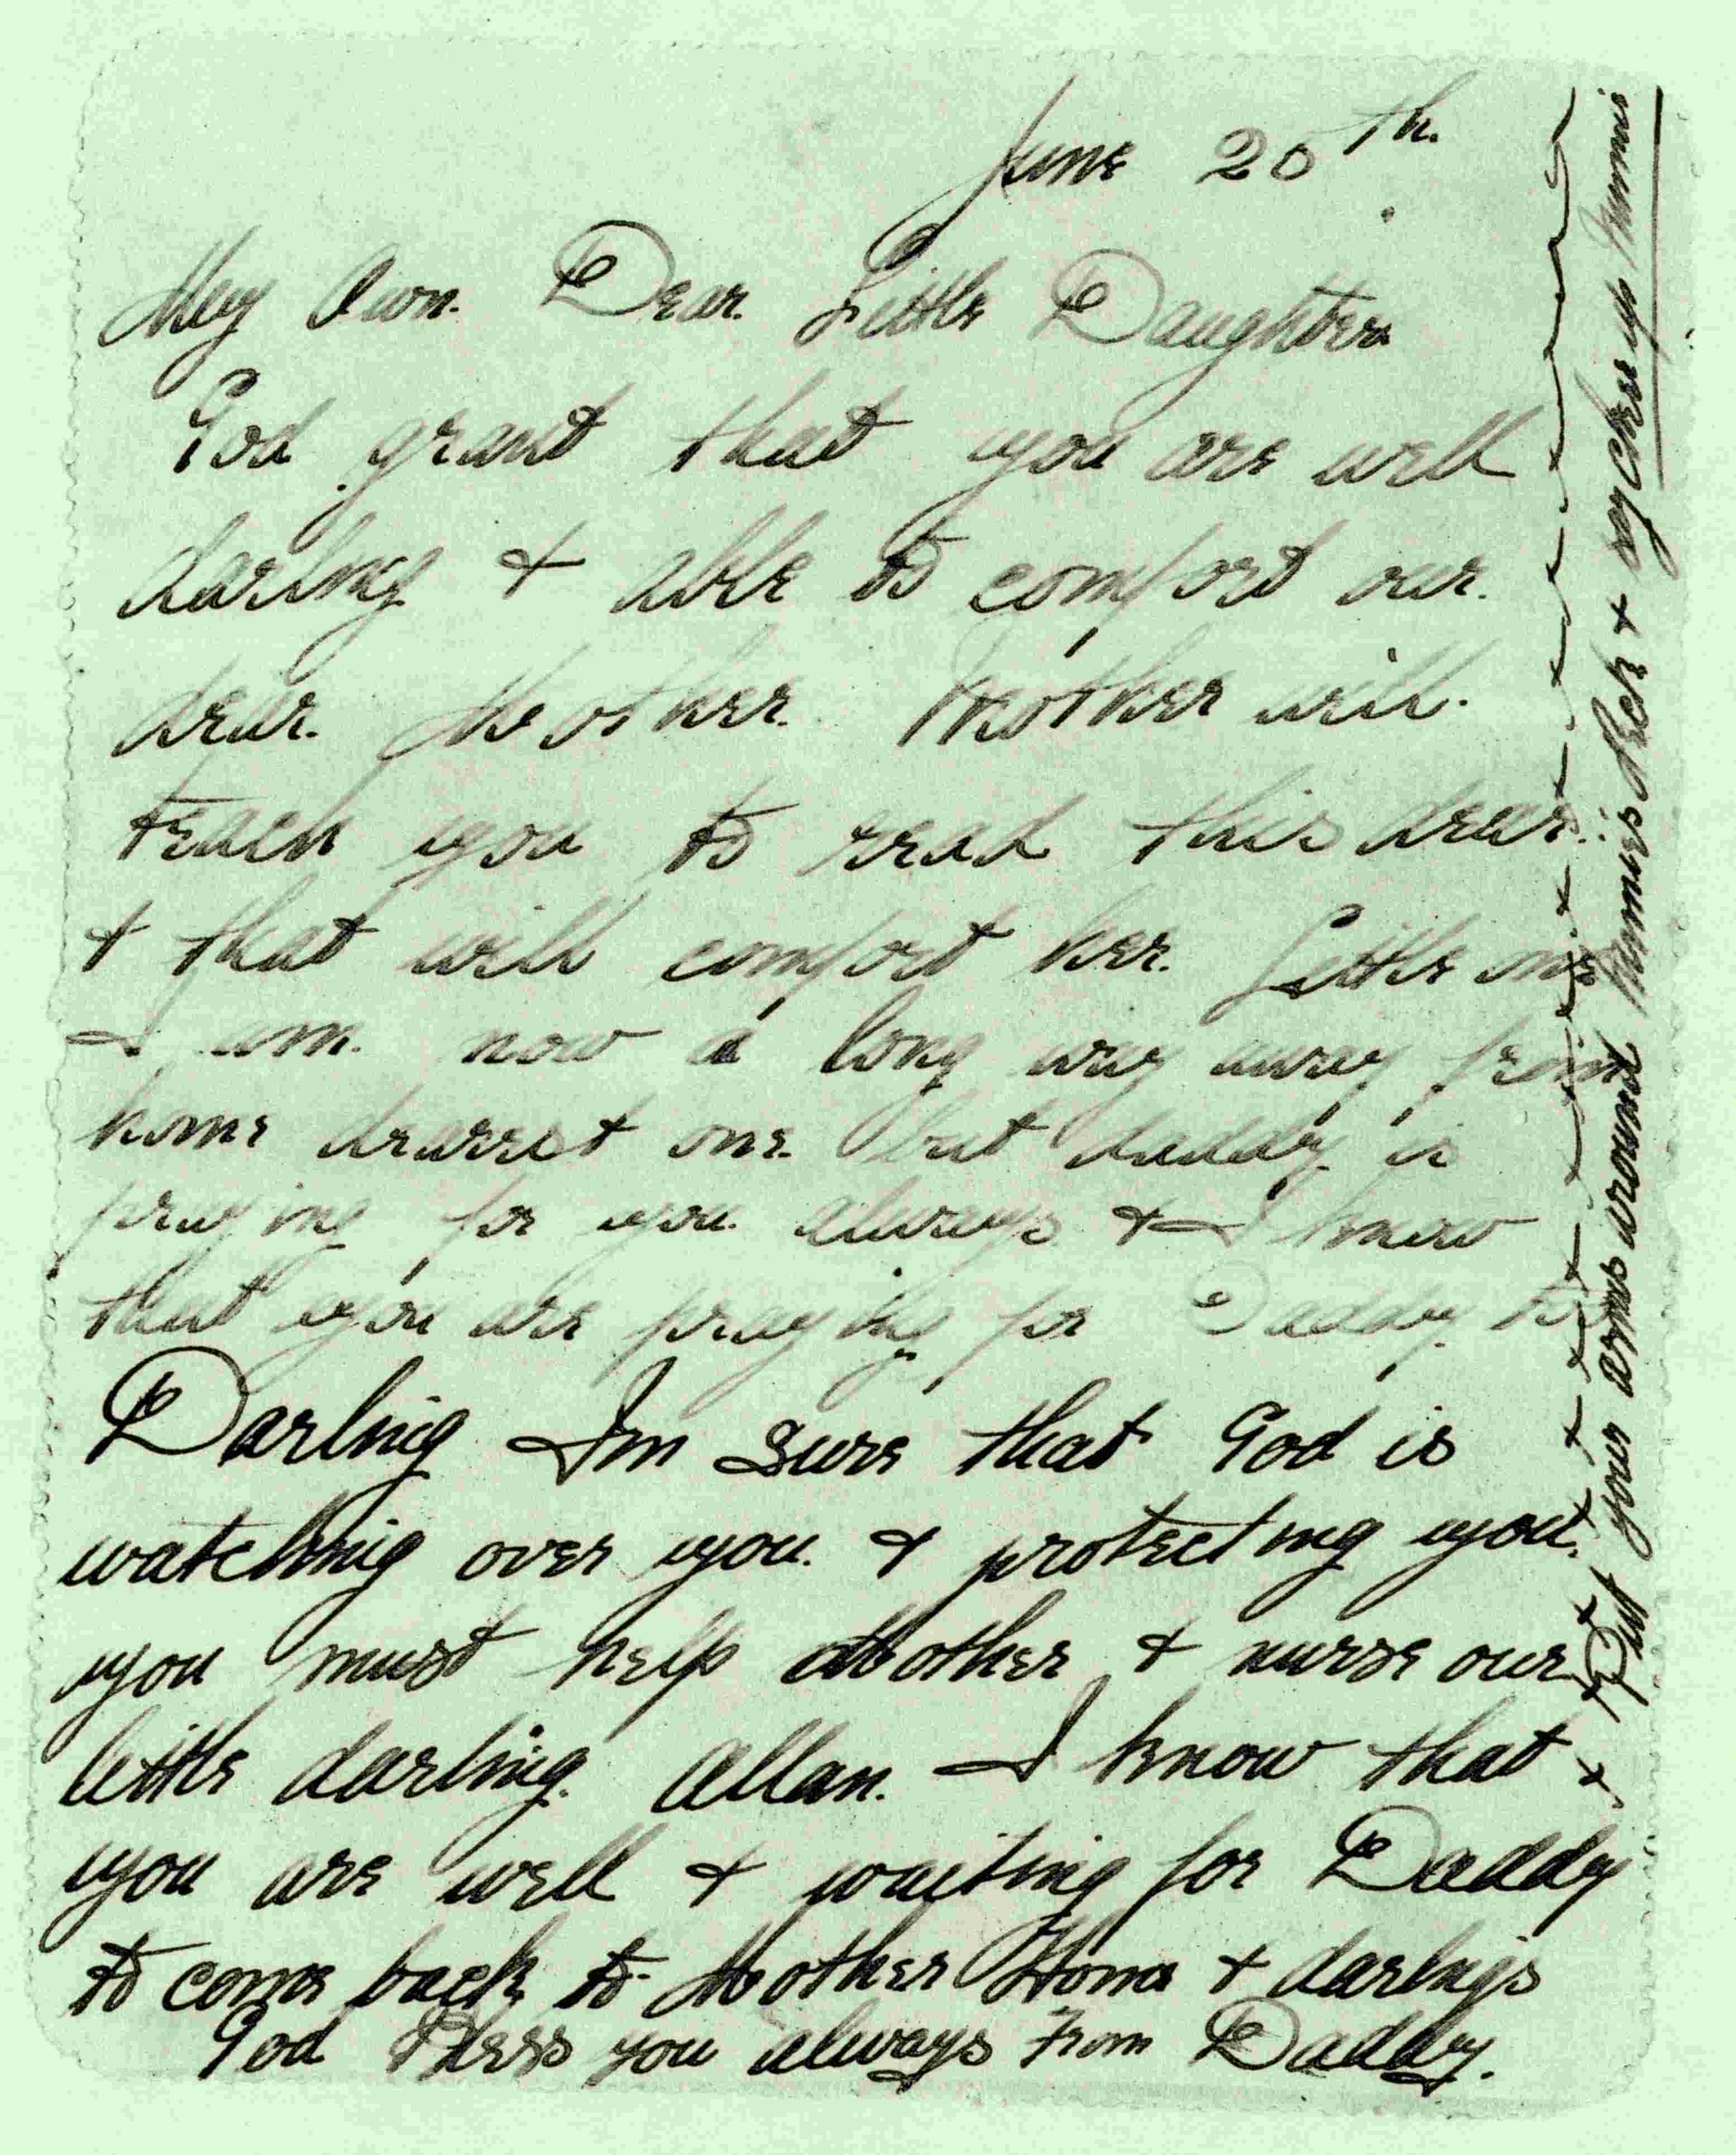 June 20th.
My Own. Dear. Little Daughter
God grant that you are well
darling + able to comfort our.
dear. Mother. Mother will.
teach you to read this dear.
+ that will comfort her. Little one
I am. now a long way away from
home dearest one. but daddy is
praying for you always + I know
that you are praying for Daddy to
Darling Im sure that God is
watching over you. + protecting you.
you must help Mother + nurse our
little darling. Allan. I know that
you are well + waiting for Daddy
to come back to Mother Home + darlings
God Bless you always From Daddy.
Put your arms around Mumie's neck + say cheer up Mumie